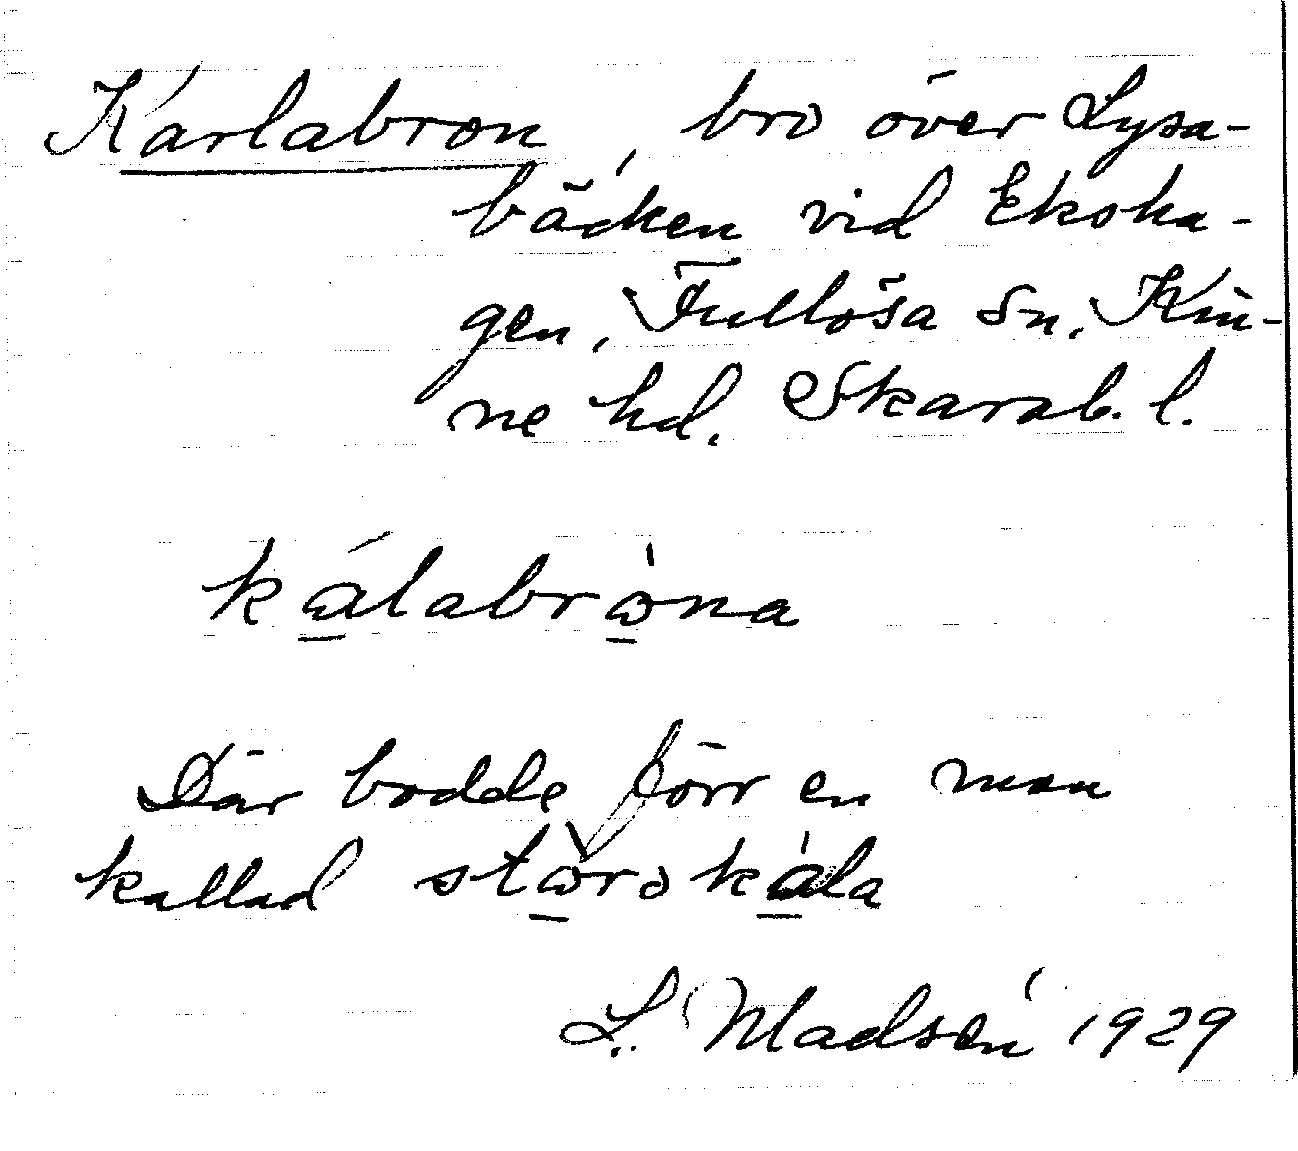 Karlabron, bro över Lysa-
bäcken vid Ekoha-
gen, Fullösa sn, Kin-
ne hd. Skarab. l.
kålabròna
Där bodde förr en man
kallad storokåla
L. Madsén 1929